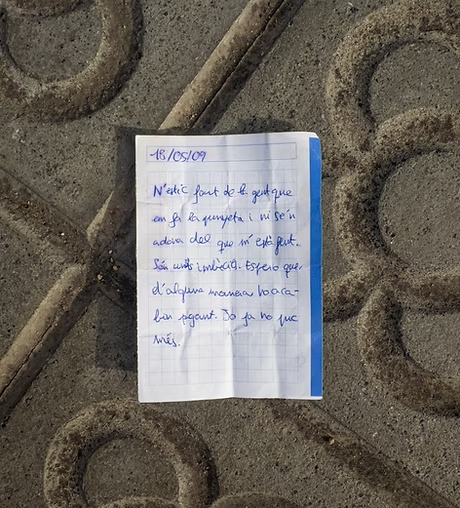 18/05/09
N'estic fart de la gent que
em fa la punyeta i ni se'n
adona del que m'està fent.
Són uns imbècils. Espero que,
d'alguna manera ho aca-
bin pagant. Jo ja no puc
més.